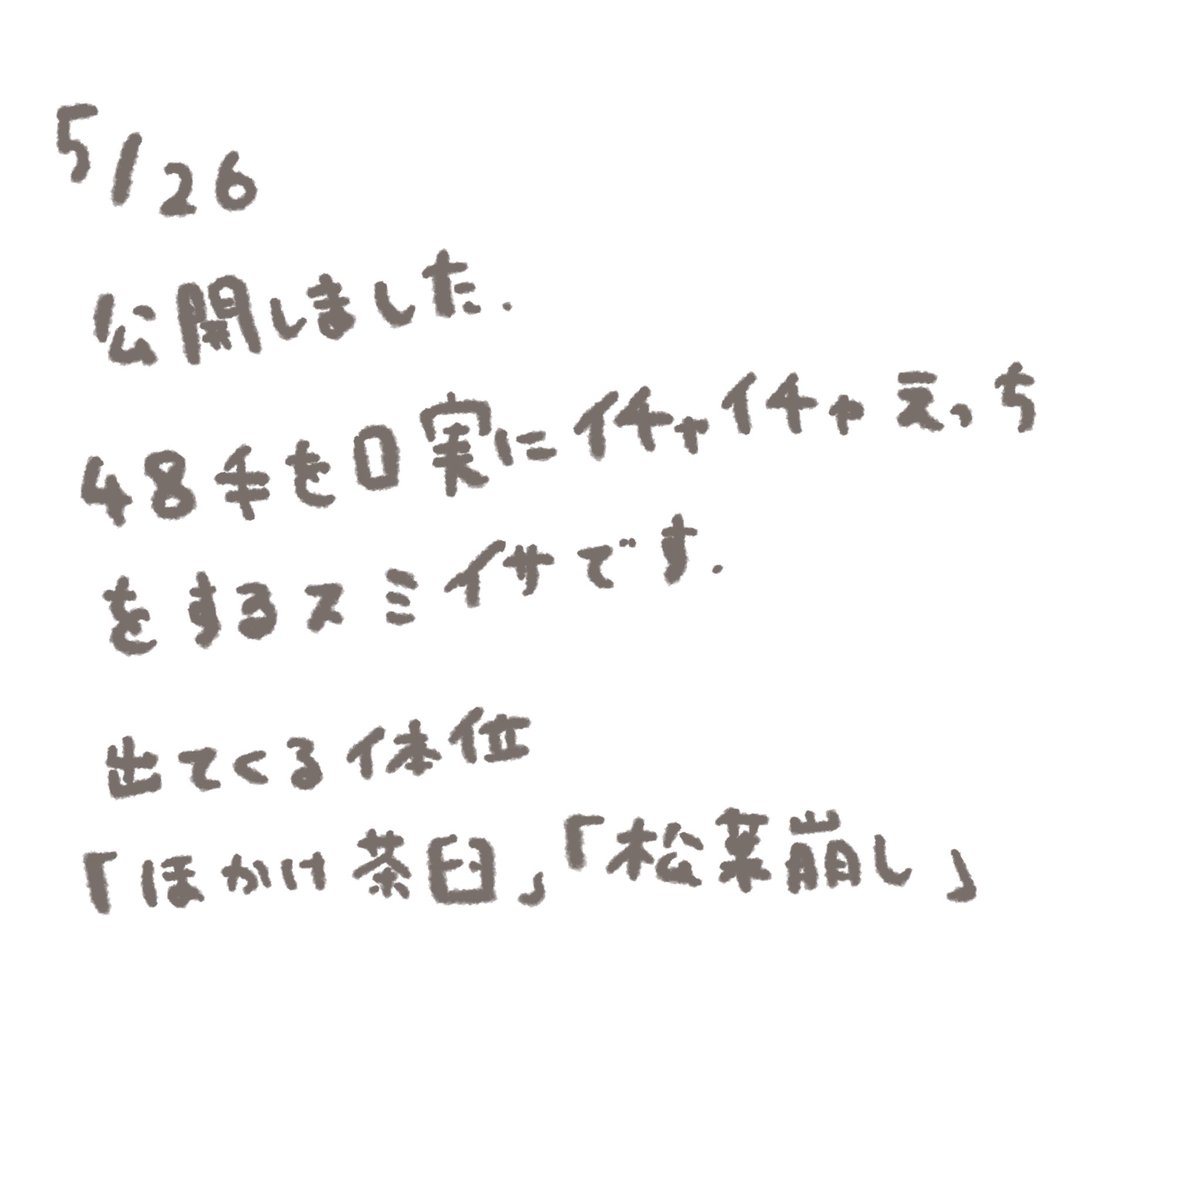 5/26
公開しました.
48手を口実にイチャイチャえっち
をするスミイサです.
出てくる体位
「ほかけ茶臼」「松葉崩し」